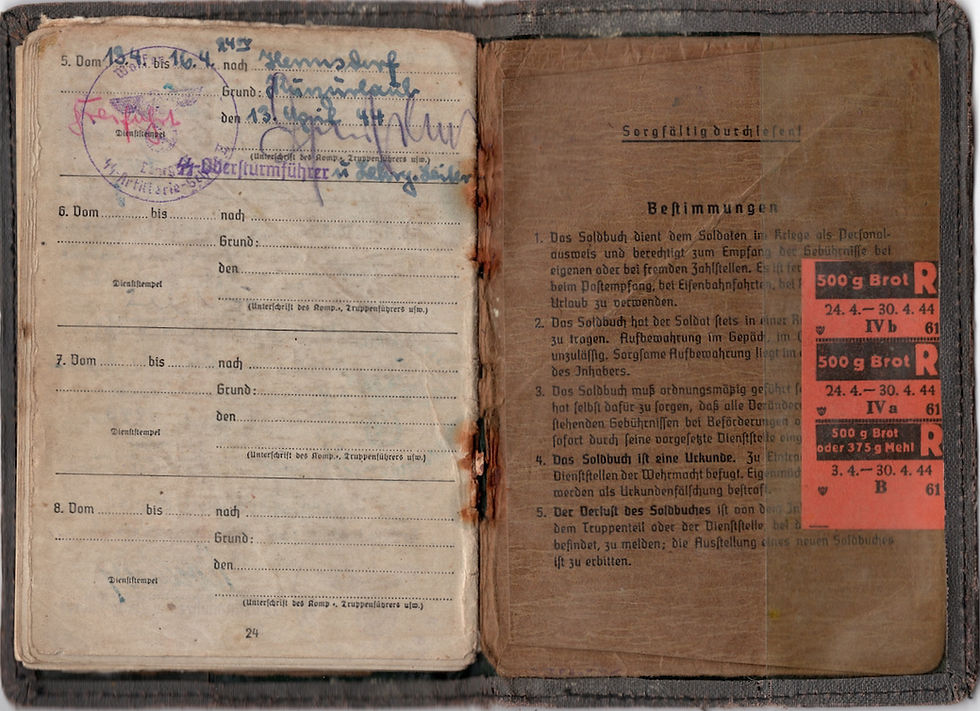 5. Vom 13.4. bis 16.4. 24 00 nach Hennsdorf
Grund: Kurzurlaub
den 13. April 44
Freifahrt
Dienststempel
(Unterschrift des Komp.-, Truppenführers usw.)
ϟϟ-Obersturmführer u
6. Vom bis nach
Grund:
den
Dienststempel
(Unterschrift des Komp.-, Truppenführers usw.)
7. Vom bis nach
Grund:
den
Dienststempel
(Unterschrift des Komp.-, Truppenführers usw.)
8. Vom bis nach
Grund:
den
Dienststempel
(Unterschrift des Komp.-, Truppenführers usw.)
24
Sorgfältig durchlesen!
Bestimmungen
1. Das Soldbuch dient dem Soldaten im Kriege als Personal-
ausweis und berechtigt zum Empfang der Gebührnisse bei
eigenen oder bei fremden Zahlstellen. Es ist
beim Postempfang, bei Eisenbahnfahrten, bei
Urlaub zu verwenden.
2. Das Soldbuch hat der Soldat stets in einer
zu tragen. Aufbewahrung im Gepäck, im
unzulässig. Sorgsame Aufbewahrung liegt im
des Inhabers.
3. Das Soldbuch muß ordnungsmäßig geführt
hat selbst dafür zu sorgen, daß alle
stehenden Gebührnissen bei Beförderungen
sofort durch seine vorgesetzte Dienststelle
4. Das Soldbuch ist eine Urkunde. Zu
Dienststellen der Wehrmacht befugt.
werden als Urkundenfälschung bestraft.
5. Der Verlust des Soldbuches ist von dem
dem Truppenteil oder der Dienststelle, bei
befindet, zu melden; die Ausstellung eines neuen Soldbuches
ist zu erbitten.
500 g Brot R
24. 4. — 30. 4. 44
IV b 61
500 g Brot R
24. 4. — 30. 4. 44
IV a 61
500 g Brot
oder 375 g Mehl R
3. 4. — 30. 4. 44
B 61